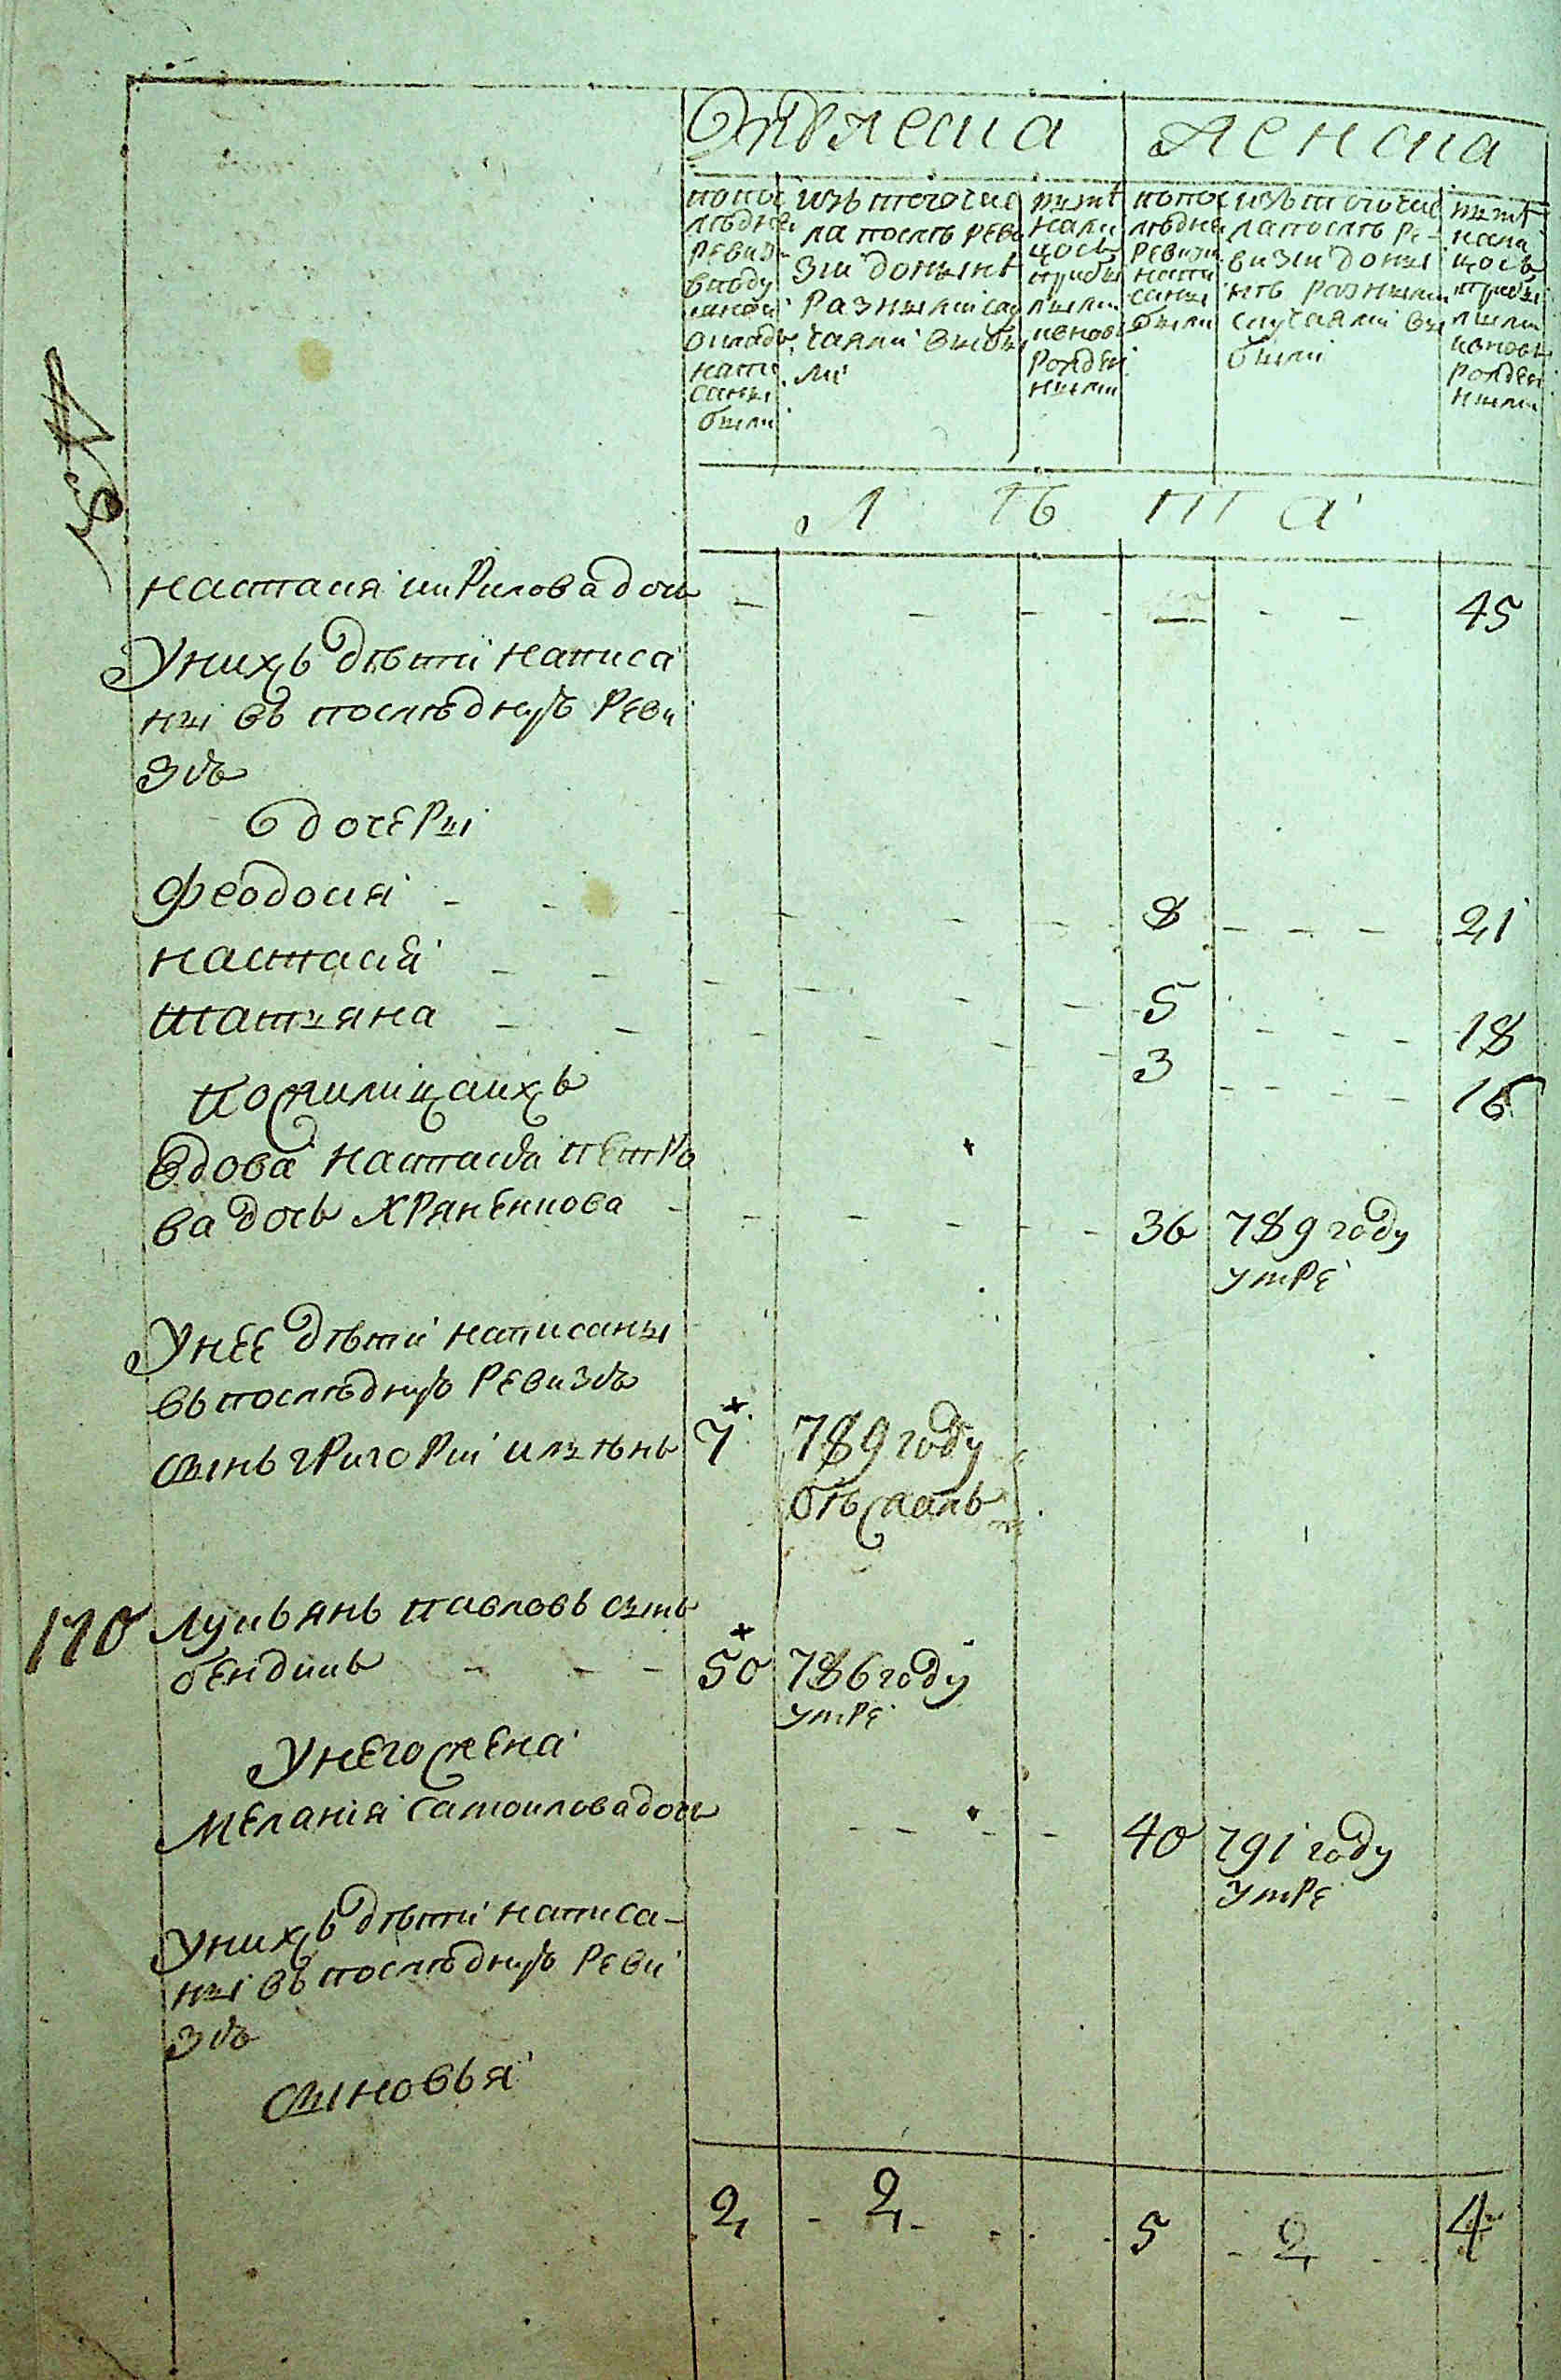 Мужеска женска
по пос
лѣдней
ревиз
в поду
шной
окладъ
напи
саны
были
изъ того чис
ла послѣ реви
зіи донынѣ
разными слу
чаями выбы
ли
нынѣ
на ли
цось
прибы
лыми
и вновь
рожден
ными
по пос
лѣдне
ревизи
напи
саны
были
изъ того чис
ла послѣ ре-
визіи доны
нѣ разными
случаями вы
были
нынѣ
на ли
цось
прибы
лыми
и вновь
рожден
ными
лѣта
настасия кирилова дочь 45
У нихъ дѣти написа
ны въ последнюю реви
зию
дочери
Феодосия 8 21
настасия 5 18
татьяна 3 16
вдова настасия петро
ва дочь 36 789 году
умре
У нее дѣти написаны
въ последнюю ревизию
сынъ григорий 7 789 году
110 Лукьянъ павловъ сынъ
50 786 году
умре
У него жена
Меланія самоилова дочь 40 791 году
умре
У нихъ дѣти написа-
ны въ последнюю реви
зию
сыновья
2 2 5 2 4